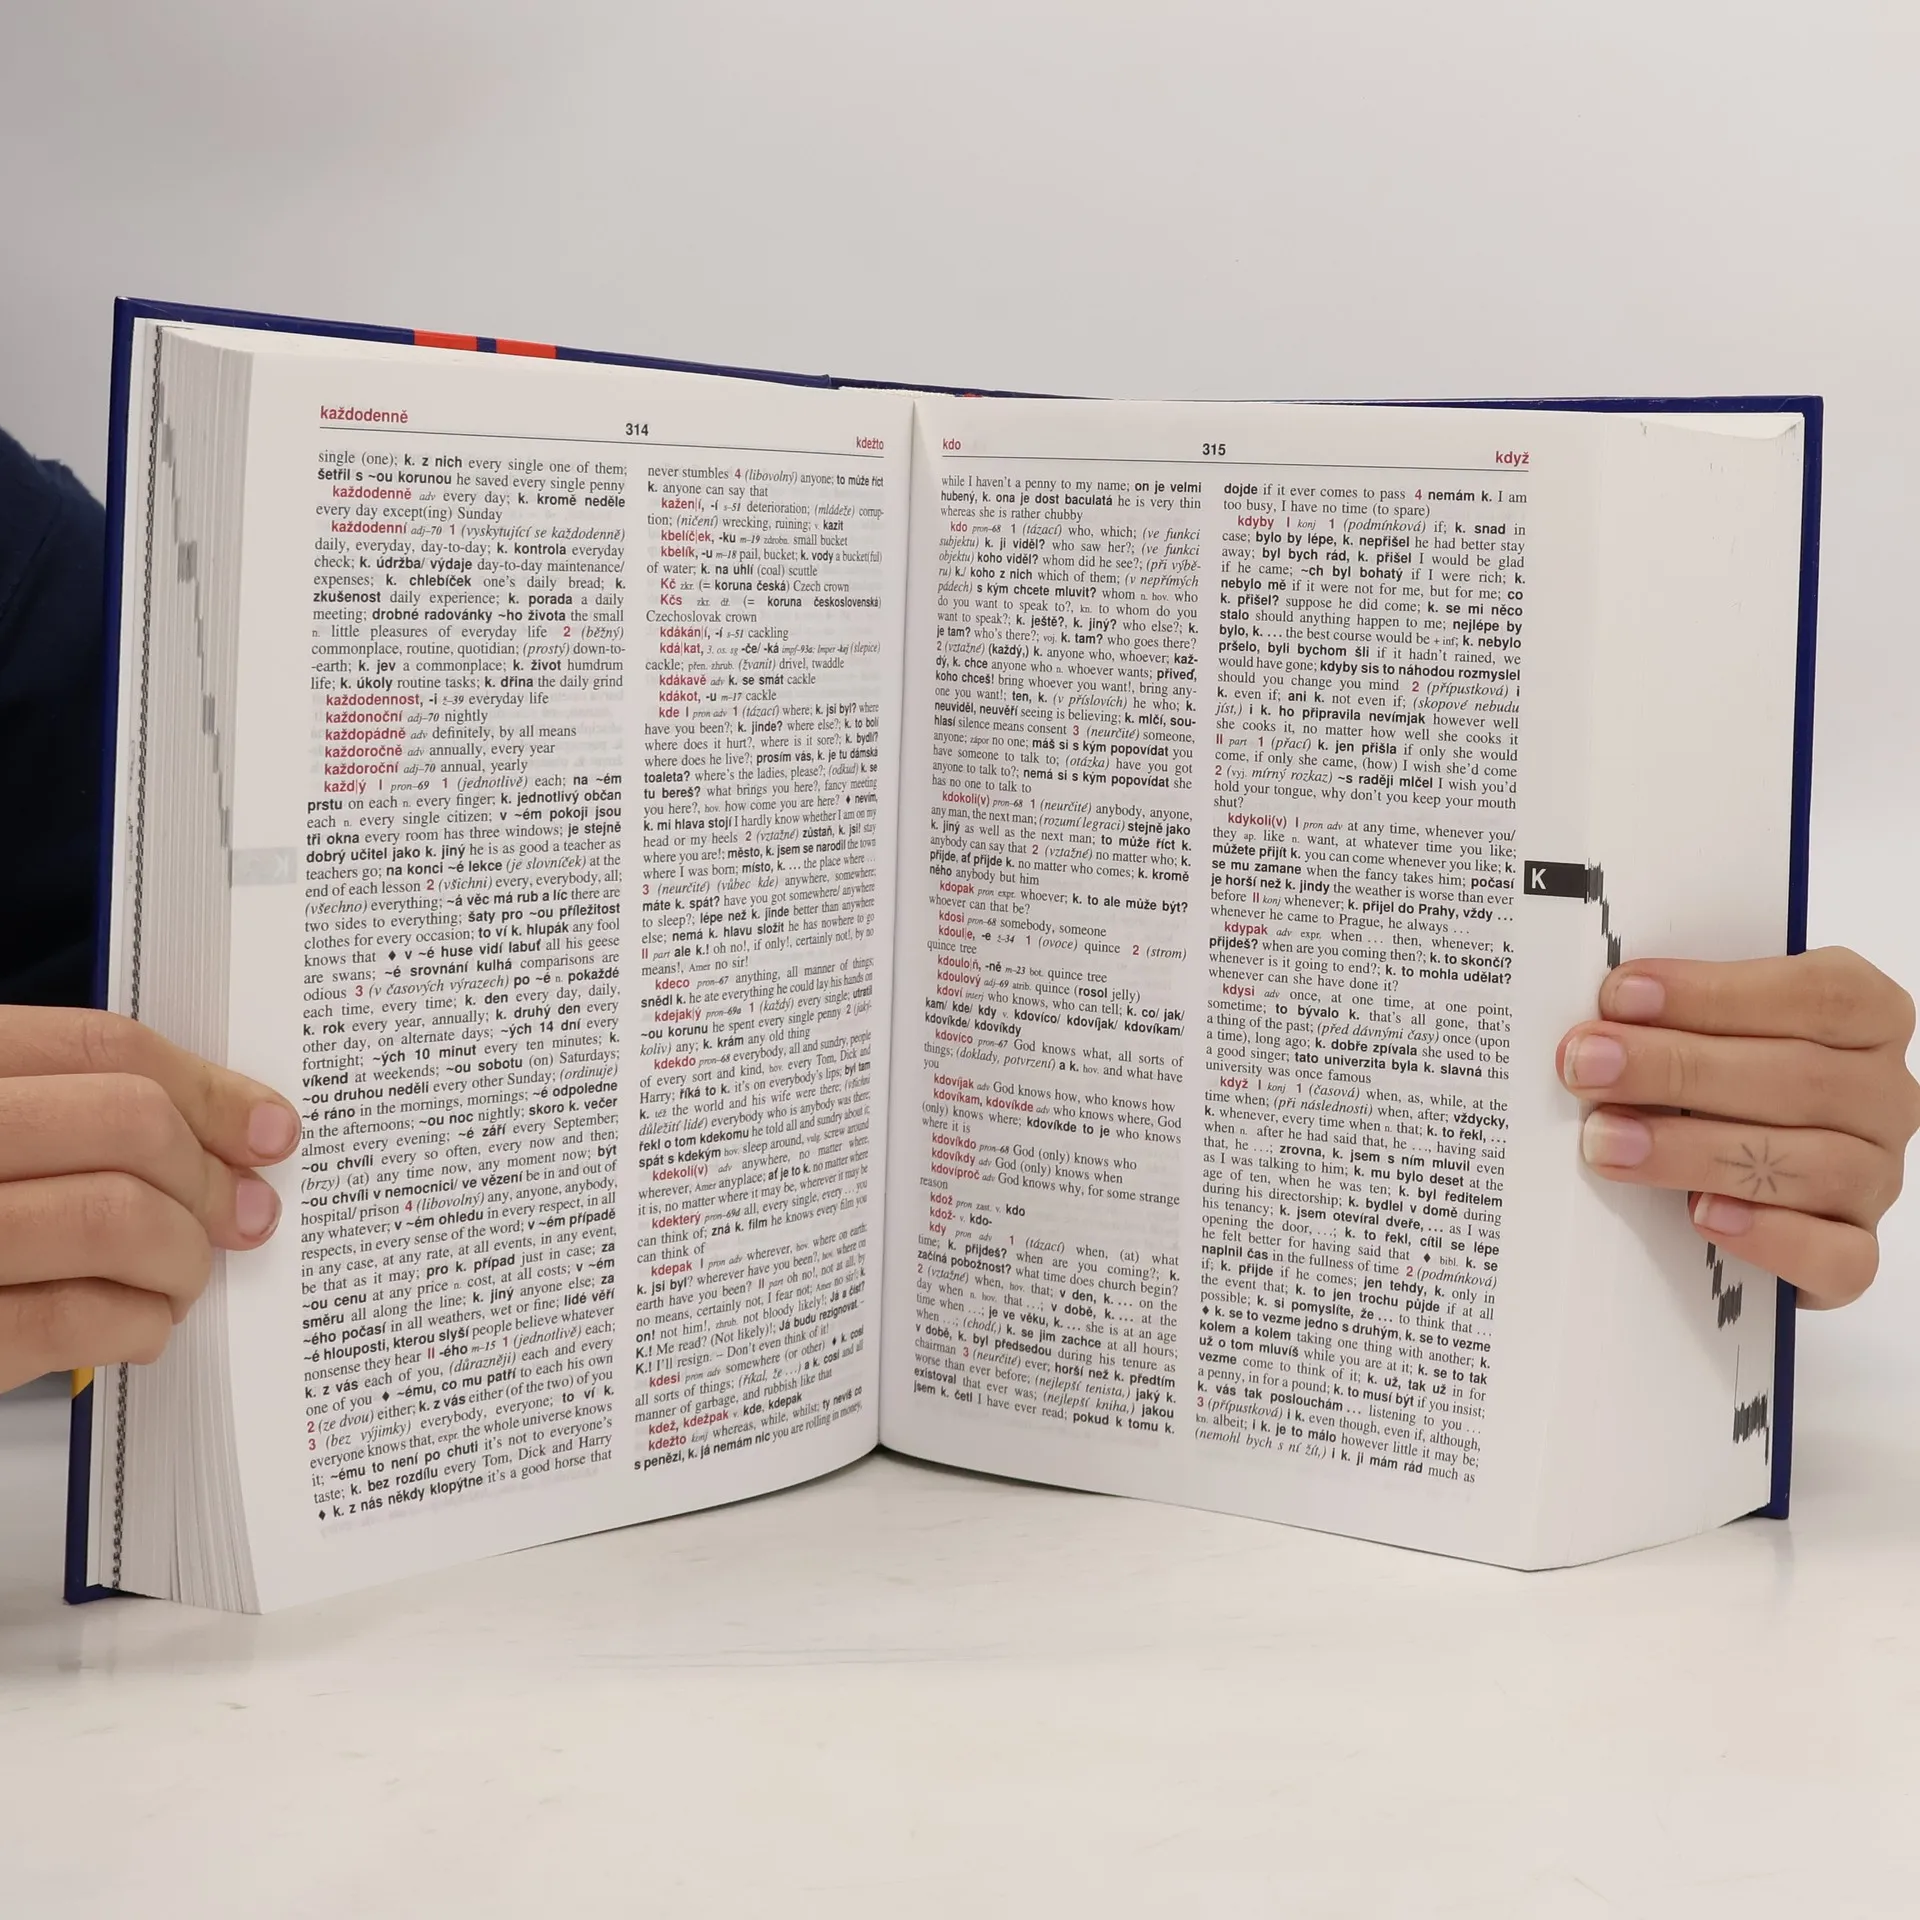 každodenně
314
kdežto
single (one); k. z nich every single one of them;
šetřil s ~ou korunou he saved every single penny
každodenně adv every day; k. kromě neděle
every day except(ing) Sunday
každodenní adj-70 1 (vyskytující se každodenně)
daily, everyday, day-to-day; k. kontrola everyday
check; k. údržba/ výdaje day-to-day maintenance/
expenses; k. chlebíček one's daily bread; k.
zkušenost daily experience; k. porada a daily
meeting; drobné radovánky ~ho života the small
n. little pleasures of everyday life 2 (běžný)
commonplace, routine, quotidian; (prostý) down-to-
-earth; k. jev a commonplace; k. život humdrum
life; k. úkoly routine tasks; k. dřina the daily grind
každodennost, -i ž-39 everyday life
každonoční adj-70 nightly
každopádně adv definitely, by all means
každoročně adv annually, every year
každoroční adj-70 annual, yearly
každ|ý I pron-69 1 (jednotlivě) each; na ~ém
prstu on each n. every finger; k. jednotlivý občan
each n. every single citizen; v ~ém pokoji jsou
tři okna every room has three windows; je stejně
dobrý učitel jako k. jiný he is as good a teacher as
teachers go; na konci ~é lekce (je slovníček) at the
end of each lesson 2 (všichni) every, everybody, all;
(všechno) everything; ~á věc má rub a líc there are
two sides to everything; šaty pro ~ou příležitost
clothes for every occasion; to ví k. hlupák any fool
knows that ♦ v ~é huse vidí labuť all his geese
are swans; ~é srovnání kulhá comparisons are
odious 3 (v časových výrazech) po ~é n. pokaždé
each time, every time; k. den every day, daily,
k. rok every year, annually; k. druhý den every
other day, on alternate days; ~ých 14 dní every
fortnight; ~ých 10 minut every ten minutes; k.
víkend at weekends; ~ou sobotu (on) Saturdays;
~ou druhou neděli every other Sunday; (ordinuje)
~é ráno in the mornings, mornings; ~é odpoledne
in the afternoons; ~ou noc nightly; skoro k. večer
almost every evening; ~é září every September;
~ou chvíli every so often, every now and then;
(brzy) (at) any time now, any moment now; být
~ou chvíli v nemocnici/ ve vězení be in and out of
hospital/ prison 4 (libovolný) any, anyone, anybody,
any whatever; v ~ém ohledu in every respect, in all
respects, in every sense of the word; v ~ém případě
in any case, at any rate, at all events, in any event,
be that as it may; pro k. případ just in case; za
~ou cenu at any price n. cost, at all costs; v ~ém
směru all along the line; k. jiný anyone else; za
~ého počasí in all weathers, wet or fine; lidé věří
~é hlouposti, kterou slyší people believe whatever
nonsense they hear II -ého m-15 1 (jednotlivě) each;
k. z vás each of you, (důrazněji) each and every
one of you ♦ ~ému, co mu patří to each his own
2 (ze dvou) either; k. z vás either (of the two) of you
3 (bez výjimky) everybody, everyone; to ví k.
everyone knows that, expr. the whole universe knows
it; ~ému to není po chuti it's not to everyone's
taste; k. bez rozdílu every Tom, Dick and Harry
♦ k. z nás někdy klopýtne it's a good horse that
never stumbles 4 (libovolný) anyone; to může říct
k. anyone can say that
kažen|í, -í s-51 deterioration; (mládeže) corrup-
tion; (ničení) wrecking, ruining; v. kazit
kbelíč|ek, -ku m-19 zdrobn. small bucket
kbelík, -u m-18 pail, bucket; k. vody a bucket(ful)
of water; k. na uhlí (coal) scuttle
Kč zkr. (= koruna česká) Czech crown
Kčs zkr. dř. (= koruna československá)
Czechoslovak crown
kdákán|í, -í s-51 cackling
kdá|kat, 3. os. sg -če/ -ká impf-93a: Imper -kej (slepice)
cackle; přen. zhrub. (žvanit) drivel, twaddle
kdákavě adv k. se smát cackle
kdákot, -u m-17 cackle
kde I pron adv 1 (tázací) where; k. jsi byl? where
have you been?; k. jinde? where else?; k. to bolí
where does it hurt?, where is it sore?; k. bydlí?
where does he live?; prosím vás, k. je tu dámská
toaleta? where's the ladies, please?; (odkud) k. se
tu bereš? what brings you here?, fancy meeting
you here?, hov. how come you are here? ♦ nevím,
k. mi hlava stojí I hardly know whether I am on my
head or my heels 2 (vztažné) zůstaň, k. jsi! stay
where you are!; město, k. jsem se narodil the town
where I was born; místo, k. ... the place where ...
3 (neurčité) (vůbec kde) anywhere, somewhere;
máte k. spát? have you got somewhere/ anywhere
to sleep?; lépe než k. jinde better than anywhere
else; nemá k. hlavu složit he has nowhere to go
II part ale k.! oh no!, if only!, certainly not!, by no
means!, Amer no sir!
kdeco pron-67 anything, all manner of things;
snědl k. he ate everything he could lay his hands on
kdejak|ý pron-69a 1 (každý) every single; utratil
~ou korunu he spent every single penny 2 (jaký-
koliv) any; k. krám any old thing
kdekdo pron-68 everybody, all and sundry, people
of every sort and kind, hov. every Tom, Dick and
Harry; říká to k. it's on everybody's lips; byl tam
k. též the world and his wife were there; (všichni
důležití lidé) everybody who is anybody was there;
řekl o tom kdekomu he told all and sundry about it;
spát s kdekým hov. sleep around, vulg. screw around
kdekoli(v) adv anywhere, no matter where,
wherever, Amer anyplace; ať je to k. no matter where
it is, no matter where it may be, wherever it may be
kdekterý pron-69d all, every single, every ... you
can think of; zná k. film he knows every film you
can think of
kdepak I pron adv wherever, hov. where on earth;
k. jsi byl? wherever have you been?, hov. where on
earth have you been? II part oh no!, not at all, by
no means, certainly not, I fear not; Amer no sir!; k.
on! not him!, zhrub. not bloody likely!; Já a číst?
K.! Me read? (Not likely)!; Já budu rezignovat –
K.! I'll resign. – Don't even think of it!
kdesi pron adv somewhere (or other) ♦ k. cosi
all sorts of things; (říkal, že ...) a k. cosi and all
manner of garbage, and rubbish like that
kdež, kdežpak v. kde, kdepak
kdežto konj whereas, while, whilst; ty nevíš co
s penězi, k. já nemám nic you are rolling in money,
kdo
315
když
while I haven't a penny to my name; on je velmi
hubený, k. ona je dost baculatá he is very thin
whereas she is rather chubby
kdo pron-68 1 (tázací) who, which; (ve funkci
subjektu) k. ji viděl? who saw her?; (ve funkci
objektu) koho viděl? whom did he see?; (při výbě-
ru) k./ koho z nich which of them; (v nepřímých
pádech) s kým chcete mluvit? whom n. hov. who
do you want to speak to?, kn. to whom do you
want to speak?; k. ještě?, k. jiný? who else?; k.
je tam? who's there?; voj. k. tam? who goes there?
2 (vztažné) (každý,) k. anyone who, whoever; kaž-
dý, k. chce anyone who n. whoever wants; přiveď,
koho chceš! bring whoever you want!, bring any-
one you want!; ten, k. (v příslovích) he who; k.
neuviděl, neuvěří seeing is believing; k. mlčí, sou-
hlasí silence means consent 3 (neurčité) someone,
anyone; zápor no one; máš si s kým popovídat you
have someone to talk to; (otázka) have you got
anyone to talk to?; nemá si s kým popovídat she
has no one to talk to
kdokoli(v) pron-68 1 (neurčité) anybody, anyone,
any man, the next man; (rozumí legraci) stejně jako
k. jiný as well as the next man; to může říct k.
anybody can say that 2 (vztažné) no matter who; k.
přijde, ať přijde k. no matter who comes; k. kromě
něho anybody but him
kdopak pron expr. whoever; k. to ale může být?
whoever can that be?
kdosi pron-68 somebody, someone
kdoul|e, -e ž-34 1 (ovoce) quince 2 (strom)
quince tree
kdoulo|ň, -ně m-23 bot. quince tree
kdoulový adj-69 atrib. quince (rosol jelly)
kdoví interj who knows, who can tell; k. co/ jak/
kam/ kde/ kdy v. kdovíco/ kdovíjak/ kdovíkam/
kdovíkde/ kdovíkdy
kdovíco pron-67 God knows what, all sorts of
things; (doklady, potvrzení) a k. hov. and what have
you
kdovíjak adv God knows how, who knows how
kdovíkam, kdovíkde adv who knows where, God
(only) knows where; kdovíkde to je who knows
where it is
kdovíkdo pron-68 God (only) knows who
kdovíkdy adv God (only) knows when
kdovíproč adv God knows why, for some strange
reason
kdož pron zast. v. kdo
kdož- v. kdo-
kdy pron adv 1 (tázací) when, (at) what
time; k. přijdeš? when are you coming?; k.
začíná pobožnost? what time does church begin?
2 (vztažné) when, hov. that; v den, k. ... on the
day when n. hov. that ...; v době, k. ... at the
time when ...; je ve věku, k. ... she is at an age
when ...; (chodí,) k. se jim zachce at all hours;
v době, k. byl předsedou during his tenure as
chairman 3 (neurčité) ever; horší než k. předtím
worse than ever before; (nejlepší tenista,) jaký k.
existoval that ever was; (nejlepší kniha,) jakou
jsem k. četl I have ever read; pokud k tomu k.
dojde if it ever comes to pass 4 nemám k. I am
too busy, I have no time (to spare)
kdyby I konj 1 (podmínková) if; k. snad in
case; bylo by lépe, k. nepřišel he had better stay
away; byl bych rád, k. přišel I would be glad
if he came; ~ch byl bohatý if I were rich; k.
nebylo mě if it were not for me, but for me; co
k. přišel? suppose he did come; k. se mi něco
stalo should anything happen to me; nejlépe by
bylo, k. ... the best course would be + inf; k. nebylo
pršelo, byli bychom šli if it hadn't rained, we
would have gone; kdyby sis to náhodou rozmyslel
should you change you mind 2 (přípustková) i
k. even if; ani k. not even if; (skopové nebudu
jíst,) i k. ho připravila nevímjak however well
she cooks it, no matter how well she cooks it
II part 1 (přací) k. jen přišla if only she would
come, if only she came, (how) I wish she'd come
2 (vyj. mírný rozkaz) ~s raději mlčel I wish you'd
hold your tongue, why don't you keep your mouth
shut?
kdykoli(v) I pron adv at any time, whenever you/
they ap. like n. want, at whatever time you like;
můžete přijít k. you can come whenever you like; k.
se mu zamane when the fancy takes him; počasí
je horší než k. jindy the weather is worse than ever
before II konj whenever; k. přijel do Prahy, vždy ...
whenever he came to Prague, he always ...
kdypak adv expr. when ... then, whenever; k.
přijdeš? when are you coming then?; k. to skončí?
whenever is it going to end?; k. to mohla udělat?
whenever can she have done it?
kdysi adv once, at one time, at one point,
sometime; to bývalo k. that's all gone, that's
a thing of the past; (před dávnými časy) once (upon
a time), long ago; k. dobře zpívala she used to be
a good singer; tato univerzita byla k. slavná this
university was once famous
když I konj 1 (časová) when, as, while, at the
time when; (při následnosti) when, after; vždycky,
k. whenever, every time when n. that; k. to řekl, ...
when n. after he had said that, he ..., having said
that, he ...; zrovna, k. jsem s ním mluvil even
as I was talking to him; k. mu bylo deset at the
age of ten, when he was ten; k. byl ředitelem
during his directorship; k. bydlel v domě during
his tenancy; k. jsem otevíral dveře, ... as I was
opening the door, ...; k. to řekl, cítil se lépe
he felt better for having said that ♦ bibl. k. se
naplnil čas in the fullness of time 2 (podmínková)
if; k. přijde if he comes; jen tehdy, k. only in
the event that; k. to jen trochu půjde if at all
possible; k. si pomyslíte, že ... to think that ...
♦ k. se to vezme jedno s druhým, k. se to vezme
kolem a kolem taking one thing with another; k.
už o tom mluvíš while you are at it; k. se to tak
vezme come to think of it; k. už, tak už in for
a penny, in for a pound; k. to musí být if you insist;
k. vás tak poslouchám ... listening to you ...
3 (přípustková) i k. even though, even if, although,
kn. albeit; i k. je to málo however little it may be;
(nemohl bych s ní žít,) i k. ji mám rád much as
K